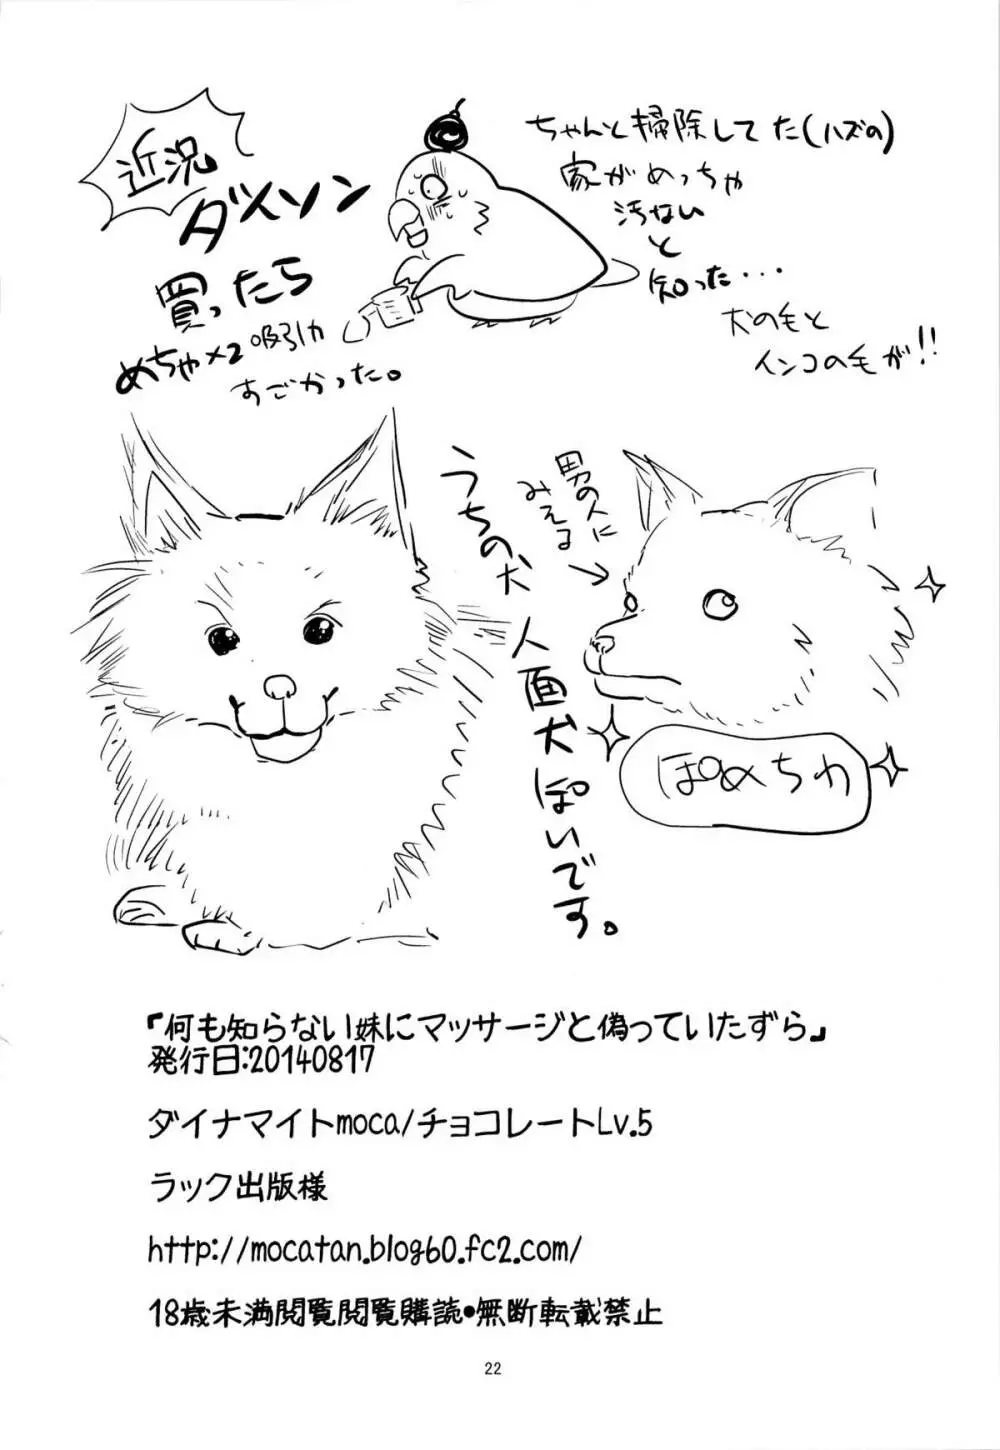 近況
ダイソン
買ったら
めちゃ×2吸引力
すごかった。
ちゃんと掃除してた(ハズの)
家がめっちゃ
汚ない
と
知った・・・
犬の毛と
インコの毛が!!
うちの犬
人面犬ぽいです。
男の人に
みえる
ぽめちわ
『何も知らない妹にマッサージと偽っていたずら』
発行日:20140817
ダイナマイトmoca/チョコレートLv.5
ラック出版様
http://mocatan.blog60.fc2.com/
18歳未満閲覧閲覧購読●無断転載禁止
22